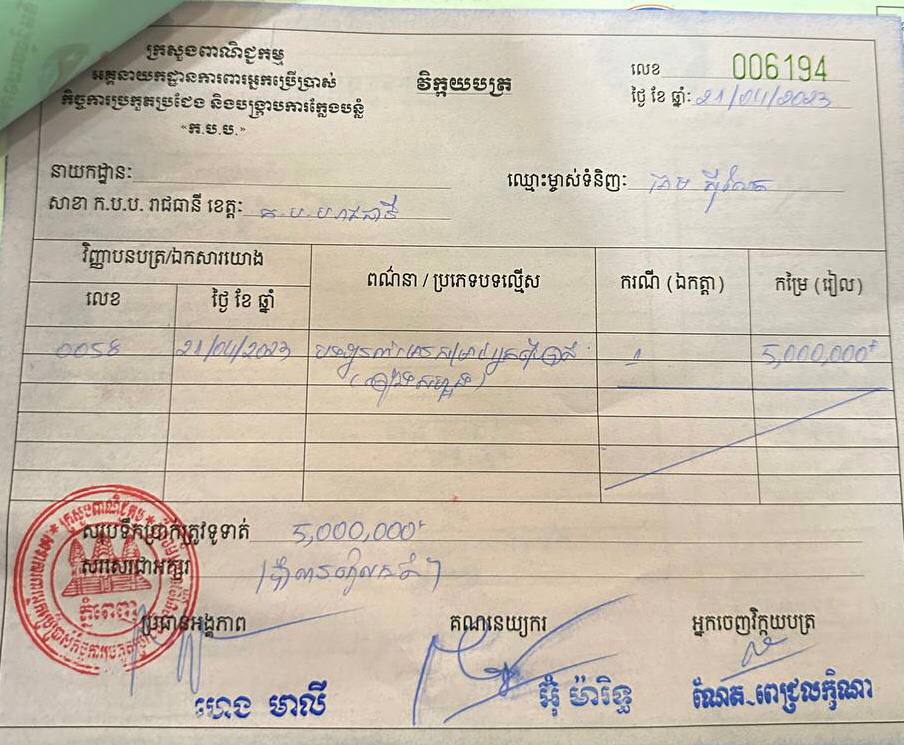 ក្រសួងពាណិជ្ជកម្ម
អគ្គនាយកដ្ឋានការពារអ្នកប្រើប្រាស់
កិច្ចការប្រកួតប្រជែង និងបង្ក្រាបការក្លែងបន្លំ
«ក.ប.ប.»
វិក្កយបត្រ
លេខ 006194
ថ្ងៃ ខែ ឆ្នាំ: 21/04/2023
នាយកដ្ឋាន:
ឈ្មោះម្ចាស់ទំនិញ:
សាខា ក.ប.ប. រាជធានី ខេត្ត: ក.ប.ប រាជធានី
វិញ្ញាបនបត្រ/ឯកសារយោង
ពណ៌នា / ប្រភេទបទល្មើស
ករណី (ឯកត្តា)
កម្រៃ (រៀល)
លេខ
ថ្ងៃ ខែ ឆ្នាំ
0058 21/04/2023 1 5,000,000៛
សរុបទឹកប្រាក់ត្រូវទូទាត់ 5,000,000៛
សរសេរជាអក្សរ (ប្រាំលានរៀលគត់)
ប្រធានអង្គភាព
គណនេយ្យករ
អ្នកចេញវិក្កយបត្រ
ភ្នំពេញ
ហេង មាលី
អ៊ុំ ម៉ារិទ្ធ
ណែត ពេជ្រលក្ខិណា